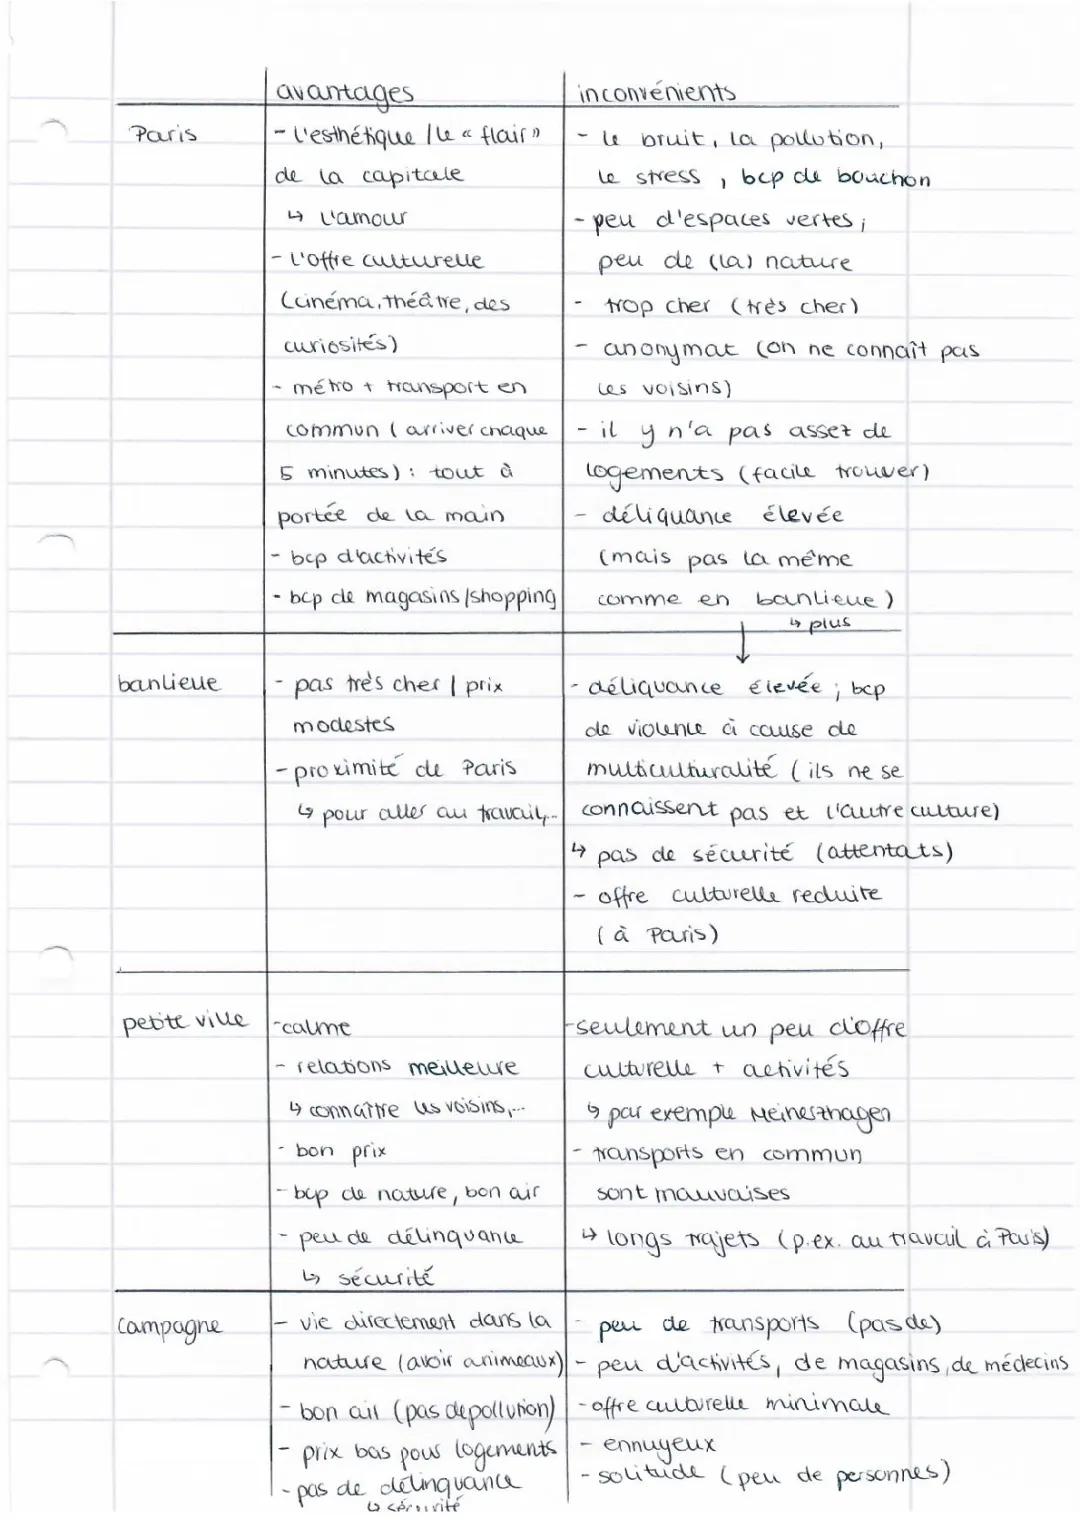 avantages
inconvénients
Paris
- l'esthétique / le « flair »
de la capitale
↳ l'amour
- l'offre culturelle
(cinéma, théâtre, des
curiosités)
- métro + transport en
commun (arriver chaque
5 minutes) : tout à
portée de la main
- bcp d'activités
- bcp de magasins/shopping
- le bruit, la pollution,
le stress, bcp de bouchon
- peu d'espaces vertes ;
peu de (la) nature
- trop cher (très cher)
- anonymat (on ne connaît pas
les voisins)
- il y n'a pas assez de
logements (facile trouver)
- déliquance élevée
(mais pas la même
comme en banlieue)
↳ plus
banlieue
- pas très cher / prix
modestes
- proximité de Paris
↳ pour aller au travail,...
- déliquance élevée ; bcp
de violence à cause de
multiculturalité (ils ne se
connaissent pas et l'autre culture)
↳ pas de sécurité (attentats)
- offre culturelle reduite
(à Paris)
petite ville
- calme
- relations meilleure
↳ connaître les voisins,...
- bon prix
- bcp de nature, bon air
- peu de délinquance
↳ sécurité
- seulement un peu d'offre
culturelle + activités
↳ par exemple Meinerzhagen
- transports en commun
sont mauvaises
↳ longs trajets (p.ex. au travail à Paris)
campagne
- vie directement dans la
nature (avoir animeaux)
- bon air (pas de pollution)
- prix bas pour logements
- pas de délinquance
↳ sécurité
- peu de transports (pas de)
- peu d'activités, de magasins, de médecins
- offre culturelle minimale
- ennuyeux
- solitude (peu de personnes)